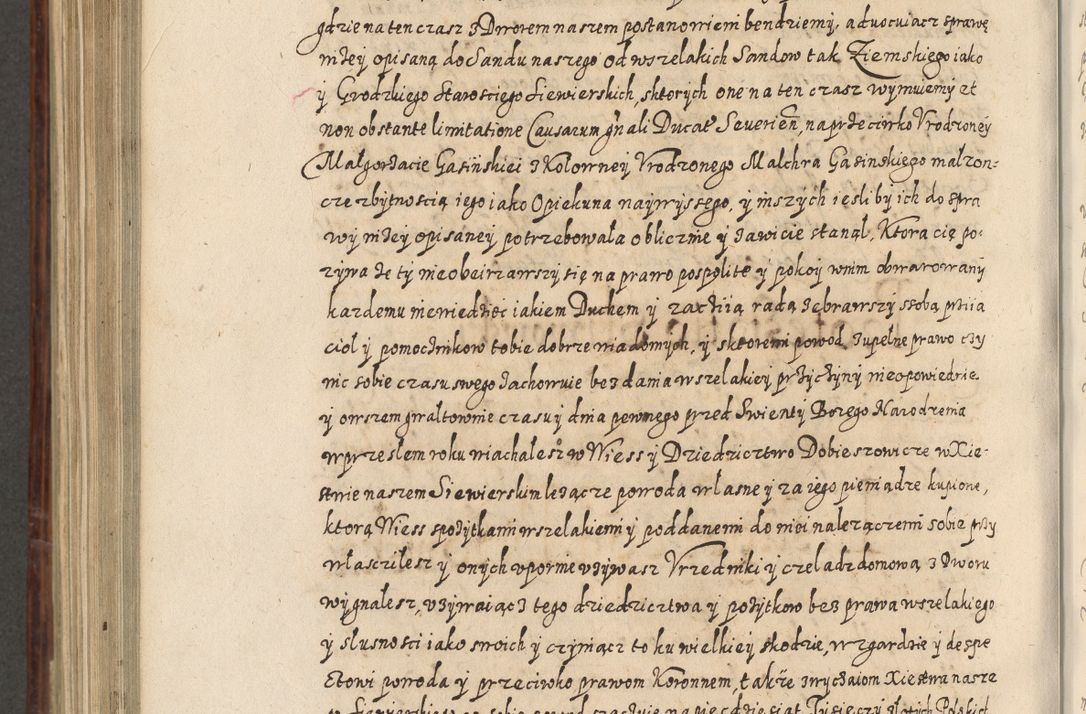 gdzie na ten czasz z Dworem naszem postanowiem bendziemy, advocuiacz sprawę
niżey opisaną do Sandu naszego od wszelakich Sandow tak Ziemskiego iako
y Grodzkiego Starosciego Siewierskich, sktorych one na ten czasz wymuiemy et
non obstante limitatione Causarum gnali Ducat Severien, naprzeciwko Vrodzoney
Małgorzacie Gasinskiei z Kolowrney Vrodzonego Malchra Gasinskiego małzon-
cze zbytnoscią iego iako Opiekuna naywyssego, y inszych iesliby ich do spra
wy niżey opisaney potrzebowała oblicznie y zawicie stanął, Ktora cię po-
zywa że ty nieobeirzawszy się na prawo pospolite y pokoy wnim obwarowany
kazdemu niewiedziec iakiem Duchem y zacziią radą zebrawszy ssobą priia
cioł y pomocznikow tobie dobrze wiadomych, y sktoremi powod zupełne prawo czy
nic sobie czasu swego zachowuie bez dania wszelakiey przyczyny nieopowiednie
y owszem gwałtownie czasu y dnia pewnego przed Swienty Bozego Narodzenia
wprzeslem roku wiachałesz w Wiess y Dziedzicztwo Dobieszowicze w Xie-
stwie naszem Siewierskim lezącze powoda własne y za iego pieniądze kupione,
ktorą Wiess spożytkami wszelakiemi y poddanemi do niei nalezączemi sobie przy
włascziłesz y onych vpornie vzywasz Vrzedniki y czeladz domową z Dworu
wygnałesz, vzywaiącz tego dziedzicztwa y pożytkow bez prawa wszelakiego
y slusnosci iako swoich y czyniącz to ku wielkiey skodzie, wzgardzie y despe
ctowi powoda y przeciwko prawom Koronnem, także zwyczaiom Xiestwa nasze
go Siewierskiego